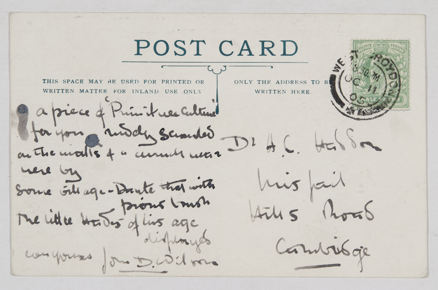 POST CARD
THIS SPACE MAY BE USED FOR PRINTED OR
WRITTEN MATTER FOR INLAND USE ONLY
ONLY THE ADDRESS TO BE
WRITTEN HERE.
a piece of "Primitive Culture"
for you rudely
on the walls of a
near by
some village - Dante that with
pious
The little of his age
displayed
yours John D. Wilson
Dr A. C. Haddon
Inisfail
Hills Road
Cambridge
WEST CROYDON
OC 11
05